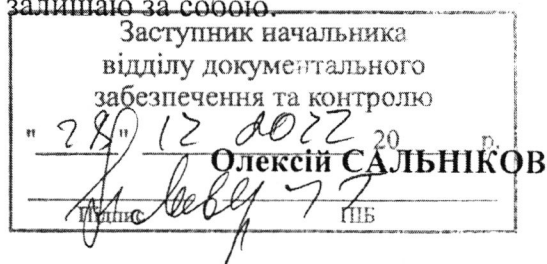 залишаю за собою.
Заступник начальника
відділу документального
забезпечення та контролю
"28" 12 2022 20 р.
Олексій САЛЬНІКОВ
Підпис ПІБ